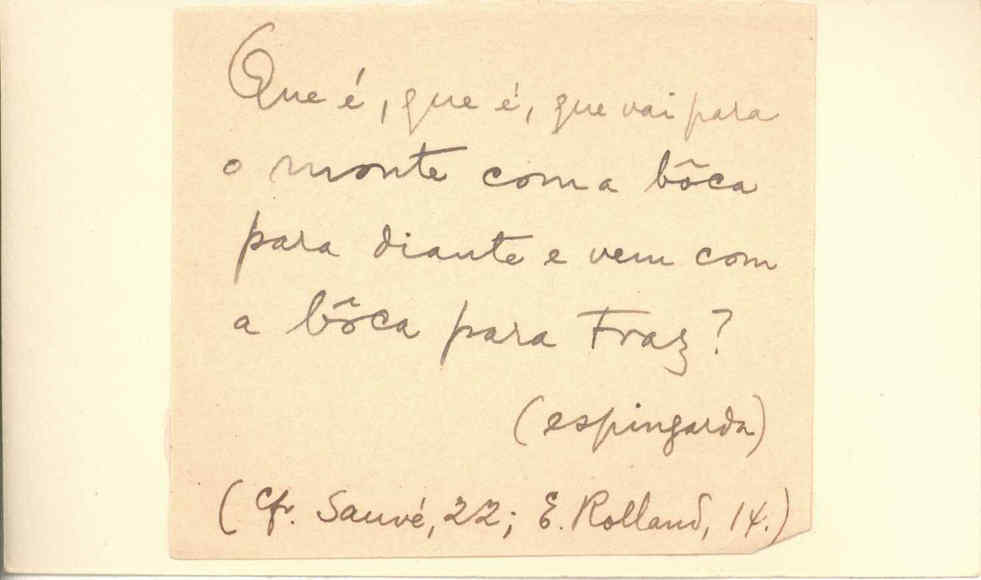 Que é, que é, que vai para
o monte com a bôca
para diante e vem com
a bôca para traz?
(espingarda)
(Cf. Sauvé, 22; E. Rolland, 14.)